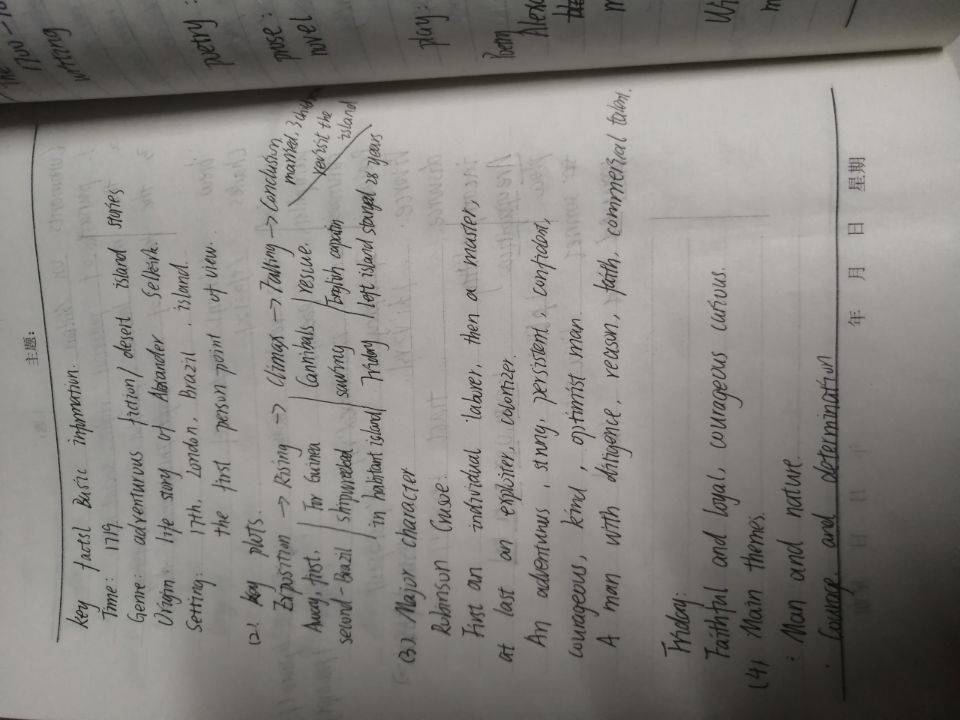 The
1700-
writing
poetry:
prose:
novel
play:
Poem
Alex
the
Wi
主题:
key facts/ Basic information.
Time: 1719.
Genre: adventurous fiction/ desert island stories.
Origin: life story of Alexander Selkirk.
Setting: 17th, London, Brazil, island.
the first person point of view.
(2) key plots.
Exposition → Rising → Climax → Falling → Conclusion
Away, first. For Guinea Cannibals rescue. married, 3
second-Brazil shipwrecked saving English captain revisit the island
in habitant island Friday left island stayed 28 years
(3). Major character
Robinson Crusoe:
First an individual laborer, then a master,
at last an exploiter, colonizer.
An adventurous, strong, persistent, confident,
courageous, kind, optimist man.
A man with diligence, reason, faith, commercial talent.
Friday:
Faithful and loyal, courageous curious.
(4) Main themes.
· Man and nature.
· Courage and determination
年 月 日 星期